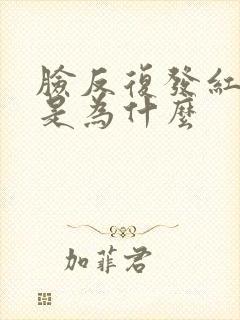 臉反復發紅
是為什麼
加菲君